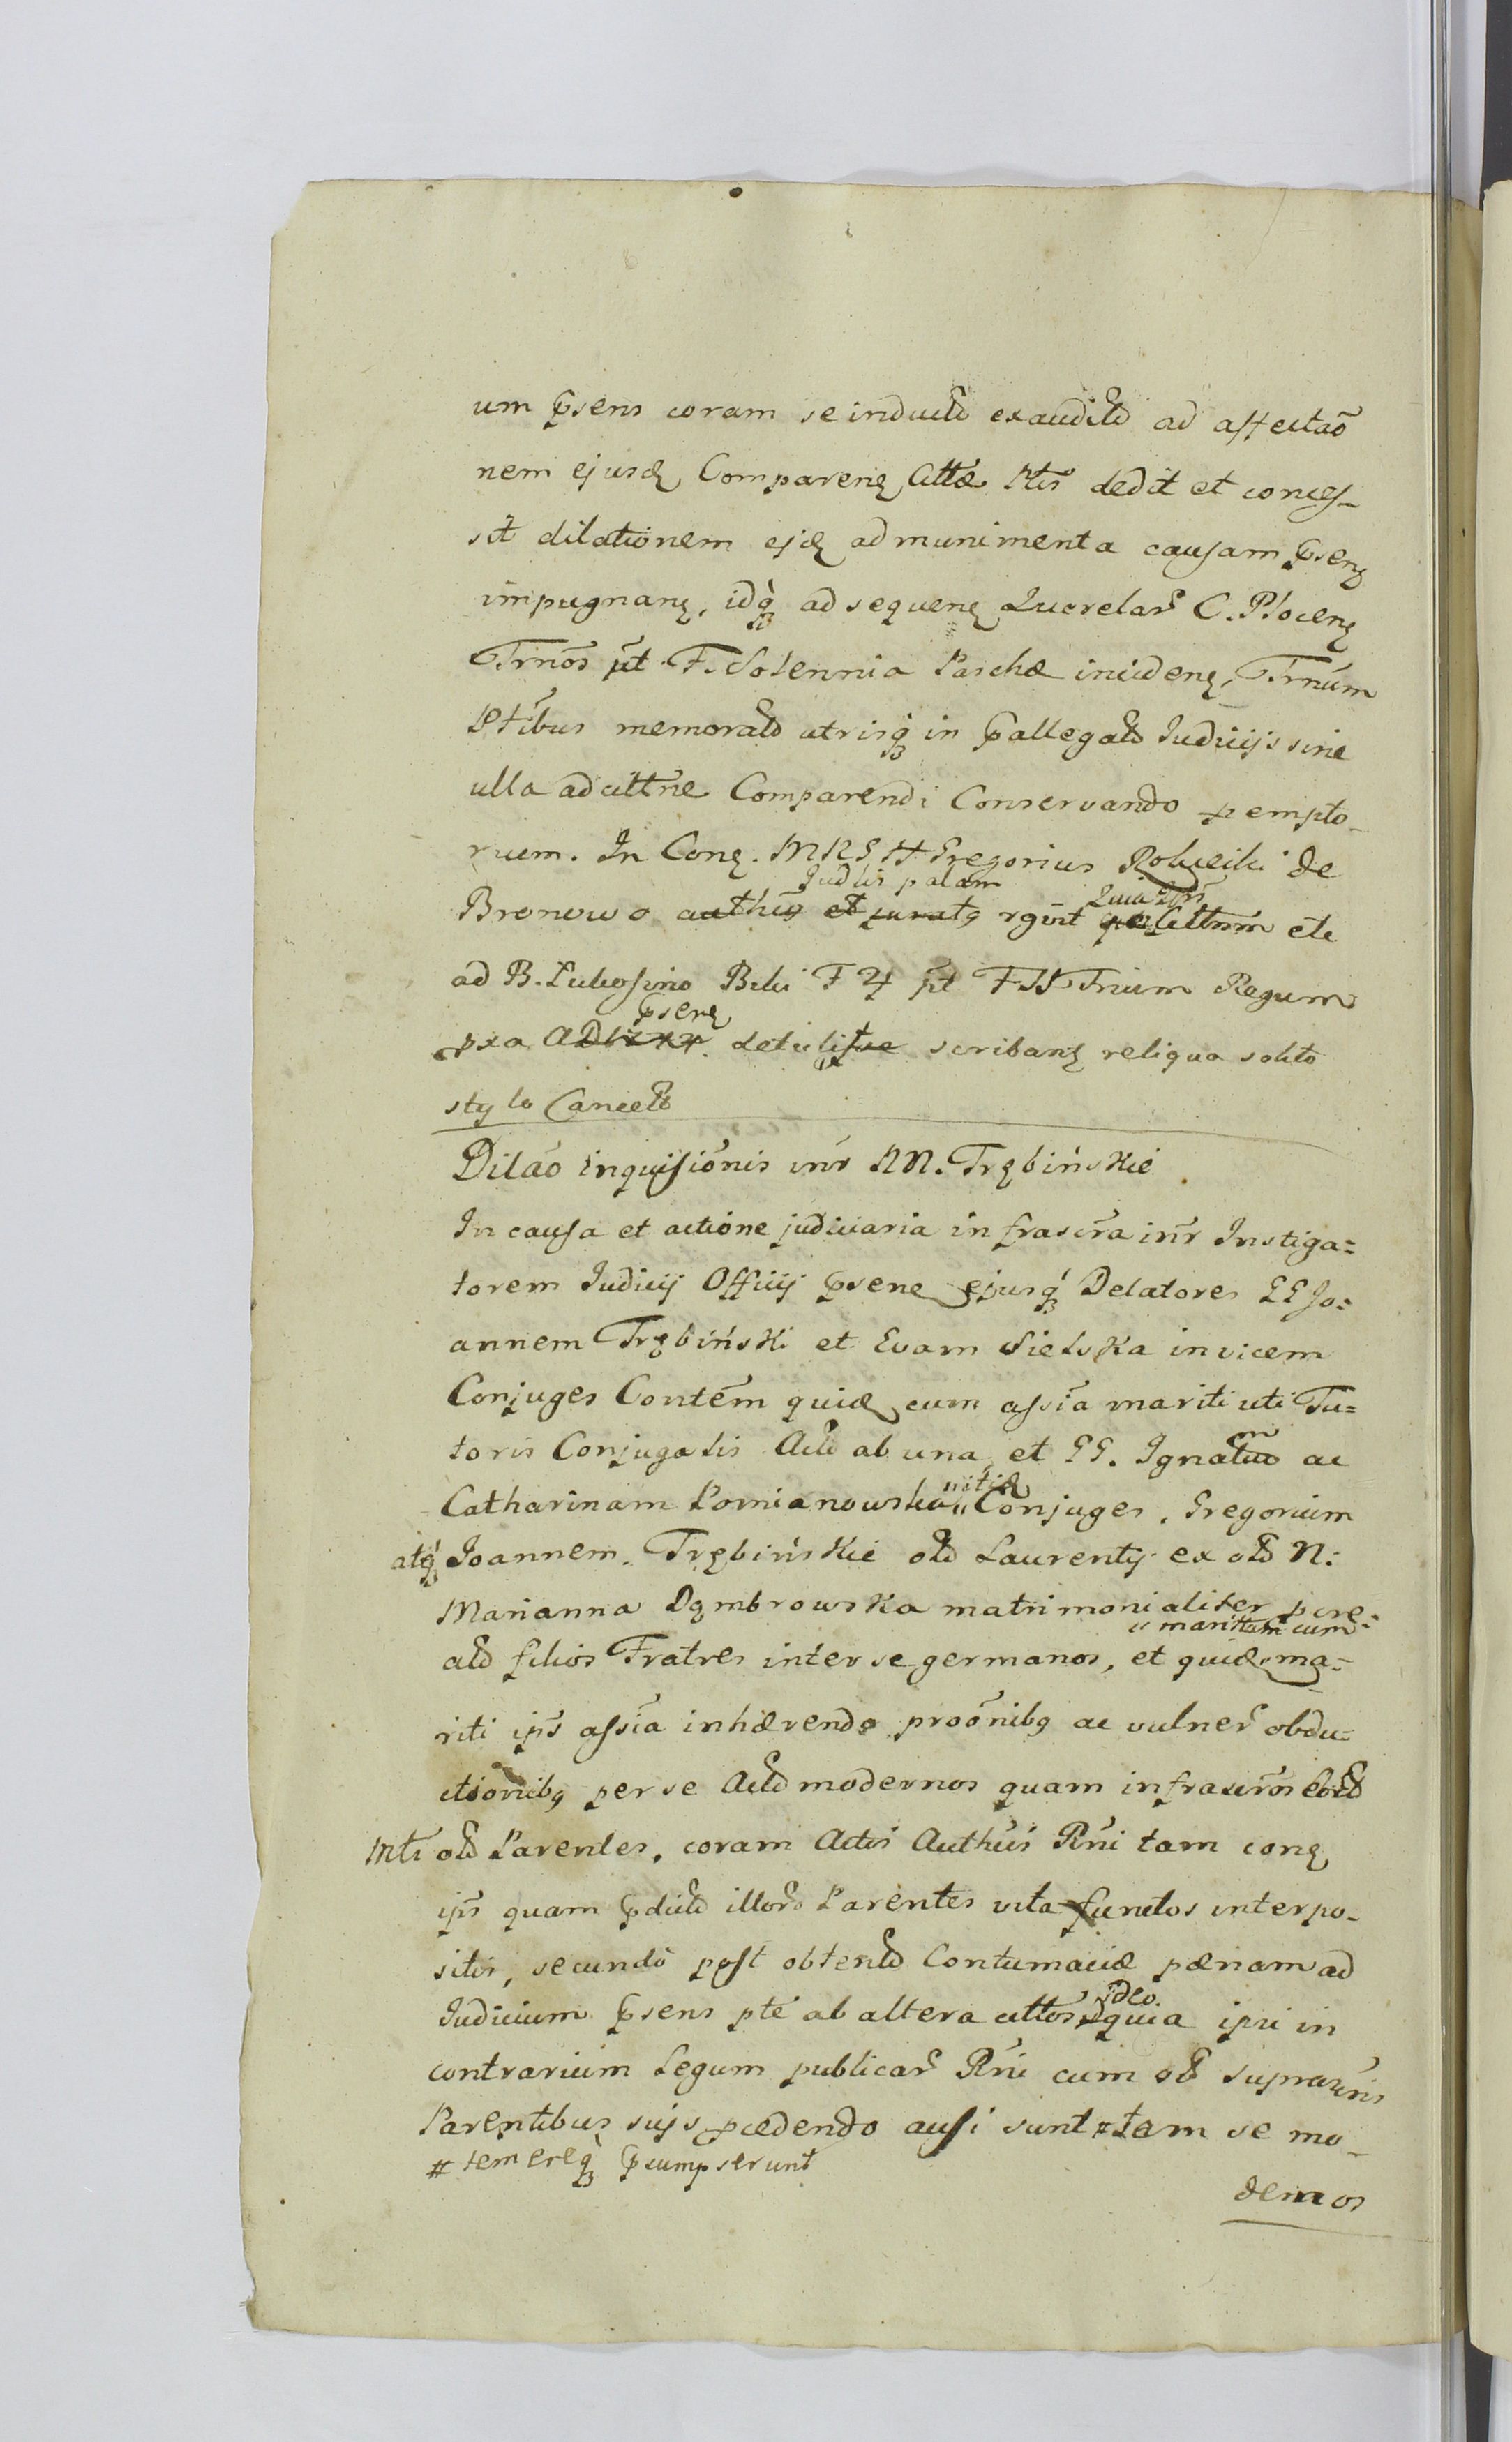 um p̄sens coram se induct̄ exaudit̄ ad affectaō
nem ejusd̨ Comparenȩ Cittæ Ptis dedit et conces-
sit dilationem ejd̨ ad munimenta causam p̄senȩ
impugnanȩ, idq̨ ad sequenȩ Querelar̄ C. Plocenȩ
Trnos̄ p̄t F. Solennia Paschæ incidenȩ, Trnūm
Ptibus memorat̄ utrisq̨ in p̄allegat̄ Judicijs sine
ulla adcittn̄e Comparendi Conservando pempto-
rium. In Conȩ. MRG H Gregorius Rolueiki de
Judlis palam Quia Ipsi
Bronowo authūs et juratȩ rgvit Cittnm̄ etc
ad B. Lubosino Bili F 4 p̄t F SS Trium Regum
p̄senȩ
pxa detulisse scribanȩ reliqua solito
stylo Cancell̄
Dilaō inquisiōnis inr̄ NN. Trębińskie
In causa et actione judiciaria infrascr̄a inr̄ Instiga=
torem Judicij Officij p̄senȩ ejusq̨ Delatores GG Jo=
annem Trębiński et Evam Sielska invicem
Conjuges Contēm quid̨ cum assīa mariti uti Tu=
toris Conjugalis Act̄ ab una, et GG. Ignatium ac
Catharinam Pomianowska natȩ Conjuges, Gregorium
atq̨ Joannem Trębińskie ol̄ Laurentij ex ol̄ N:
Marianna Dąmbrowska matrimonialiter p cre=
maritum cum
at̄ filios Fratres inter se germanos, et quid̨ ma=
riti ips̄ assīa inhærendo proōnibȩ ac vulner̄ obdu=
ctionibȩ per se Act̄ modernos quam infrascr̄os
Mtr̄ ol̄ Parentes, coram Actis Authūis Rn̄i tam conȩ
ips̄ quam p̄dict̄ illor̄ Parentes vita functos interpo-
sitis, secundō post obtent̄ Contumaciæ pœnam ad
ideo
Judicium p̄sens pte ab altera cittos̄ quia ipsi in
contrarium Legum publicar̄ Rn̄i cum ol̄ suprascr̄is
Parentibus suis p̄cedendo ausi sunt # tam se mo-
# temereq̨ p̄sumpserunt
dernos